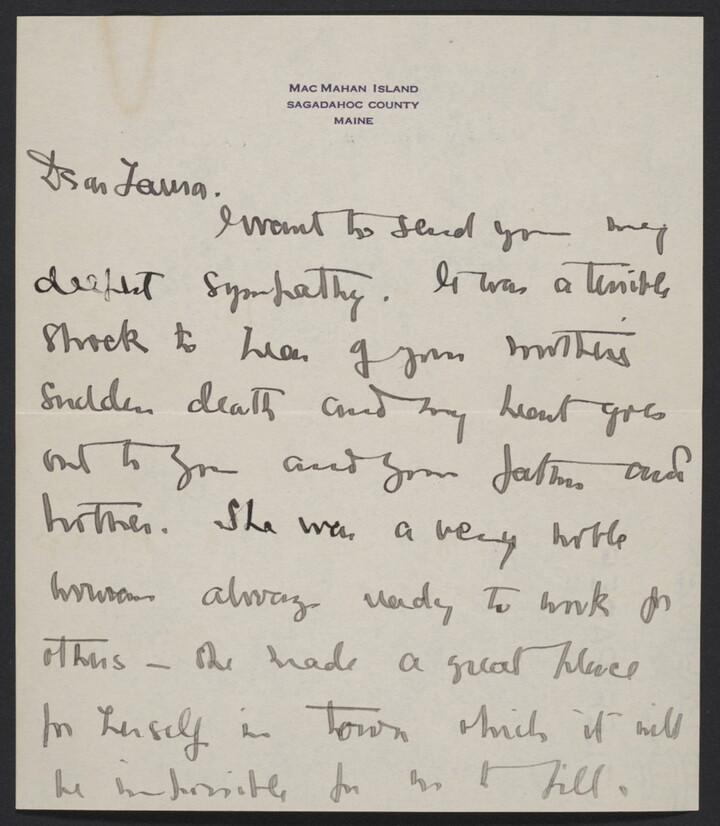 MAC MAHAN ISLAND
SAGADAHOC COUNTY
MAINE
Dear Laura.
I want to send you my
deepest sympathy. It was a terrible
shock to hear of your mother's
sudden death and my heart goes
out to you and your father and
brother. She was a very noble
woman always ready to work for
others — she made a great place
for herself in town which it will
be impossible for us to fill.